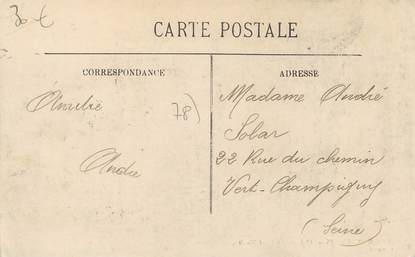 30 €
CARTE POSTALE
CORRESPONDANCE
ADRESSE
Amitié
André
78)
Madame André
Solar
22 Rue du chemin
Vert-Champigny
(Seine)